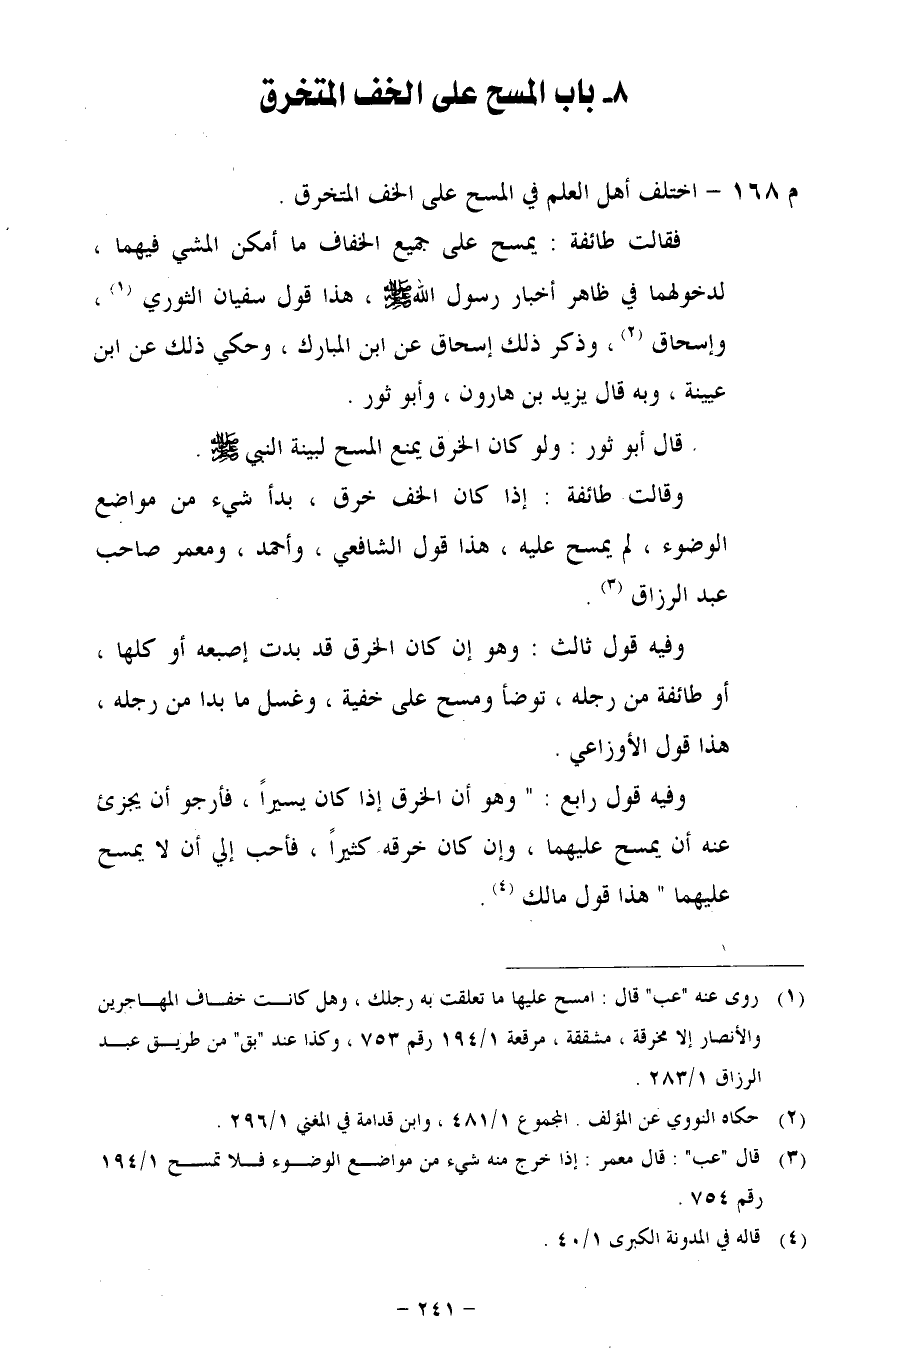 ٨ـ باب المسح على الخف المتخرق
م ١٦٨ – اختلف أهل العلم في المسح على الخف المتخرق .
فقالت طائفة : يمسح على جميع الخفاف ما أمكن المشي فيهما ،
لدخولهما في ظاهر أخبار رسول الله ﷺ ، هذا قول سفيان الثوري (١) ،
وإسحاق (٢) ، وذكر ذلك إسحاق عن ابن المبارك ، وحكي ذلك عن ابن
عيينة ، وبه قال يزيد بن هارون ، وأبو ثور .
قال أبو ثور : ولو كان الخرق يمنع المسح لبينة النبي ﷺ .
وقالت طائفة : إذا كان الخف خرق ، بدأ شيء من مواضع
الوضوء ، لم يمسح عليه ، هذا قول الشافعي ، وأحمد ، ومعمر صاحب
عبد الرزاق (٣) .
وفيه قول ثالث : وهو إن كان الخرق قد بدت إصبعه أو كلها ،
أو طائفة من رجله ، توضأ ومسح على خفية ، وغسل ما بدا من رجله ،
هذا قول الأوزاعي .
وفيه قول رابع : " وهو أن الخرق إذا كان يسيراً ، فأرجو أن يجزئ
عنه أن يمسح عليهما ، وإن كان خرقه كثيراً ، فأحب إلي أن لا يمسح
عليهما " هذا قول مالك (٤) .
(١) روى عنه "عب" قال : امسح عليها ما تعلقت به رجلك ، وهل كانت خفاف المهاجرين
والأنصار إلا مخرقة ، مشققة ، مرقعة ١٩٤/١ رقم ٧٥٣ ، وكذا عند "بق" من طريق عبد
الرزاق ٢٨٣/١ .
(٢) حكاه النووي عن المؤلف . المجموع ٤٨١/١ ، وابن قدامة في المغني ٢٩٦/١ .
(٣) قال "عب" : قال معمر : إذا خرج منه شيء من مواضع الوضوء فلا تمسح ١٩٤/١
رقم ٧٥٤ .
(٤) قاله في المدونة الكبرى ٤٠/١ .
– ٢٤١ –